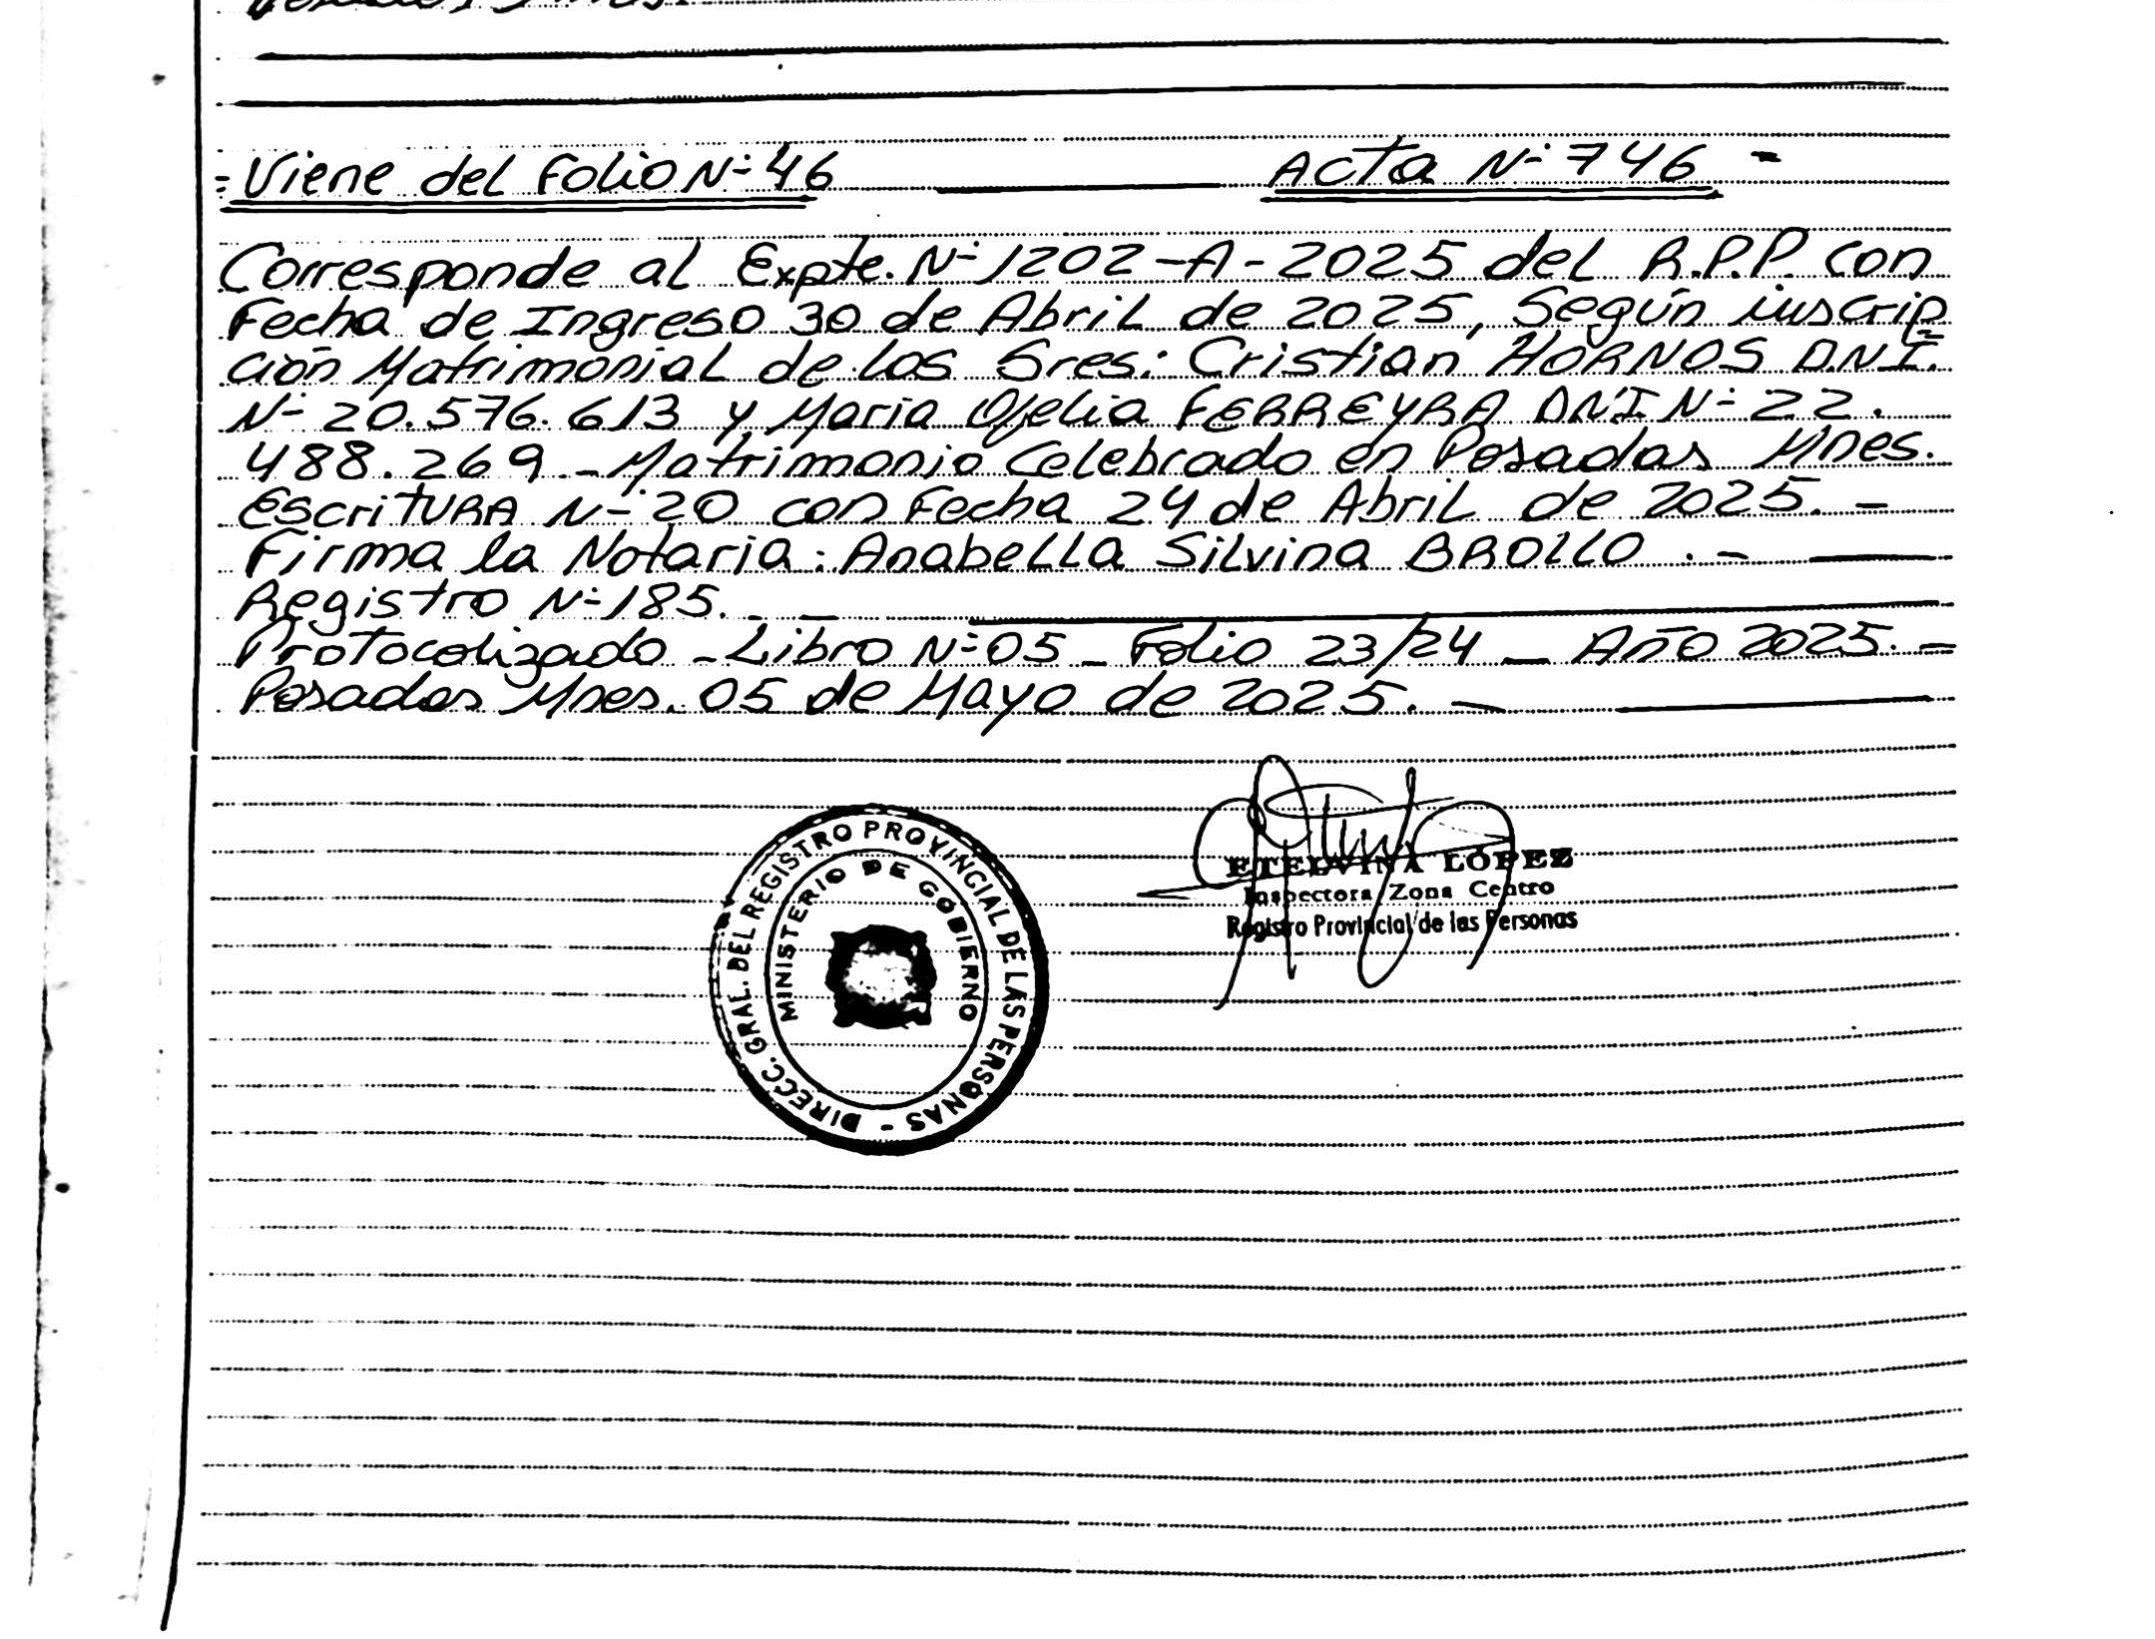 = Viene del Folio N- 46 Acta N- 746 =
Corresponde al Expte. N- 1202-A-2025 del R.P.P. con
Fecha de Ingreso 30 de Abril de 2025, Según inscrip
ción Matrimonial de los Sres: Cristian HORNOS D.N.I.
N- 20.576.613 y Maria Ofelia FERREYRA DNI N- 22.
488.269 _ Matrimonio Celebrado en Posadas Mnes.
Escritura N- 20 con Fecha 24 de Abril de 2025. -
Firma la Notaria: Anabella Silvina BROLLO . -
Registro N- 185. -
Protocolizado - Libro N- 05 - Folio 23/24 - Año 2025. -
Posadas Mnes. 05 de Mayo de 2025. -
DIRECC. GRAL. DEL REGISTRO PROVINCIAL DE LAS PERSONAS -
MINISTERIO DE GOBIERNO
ETELVINA LOPEZ
Inspectora Zona Centro
Registro Provincial de las Personas